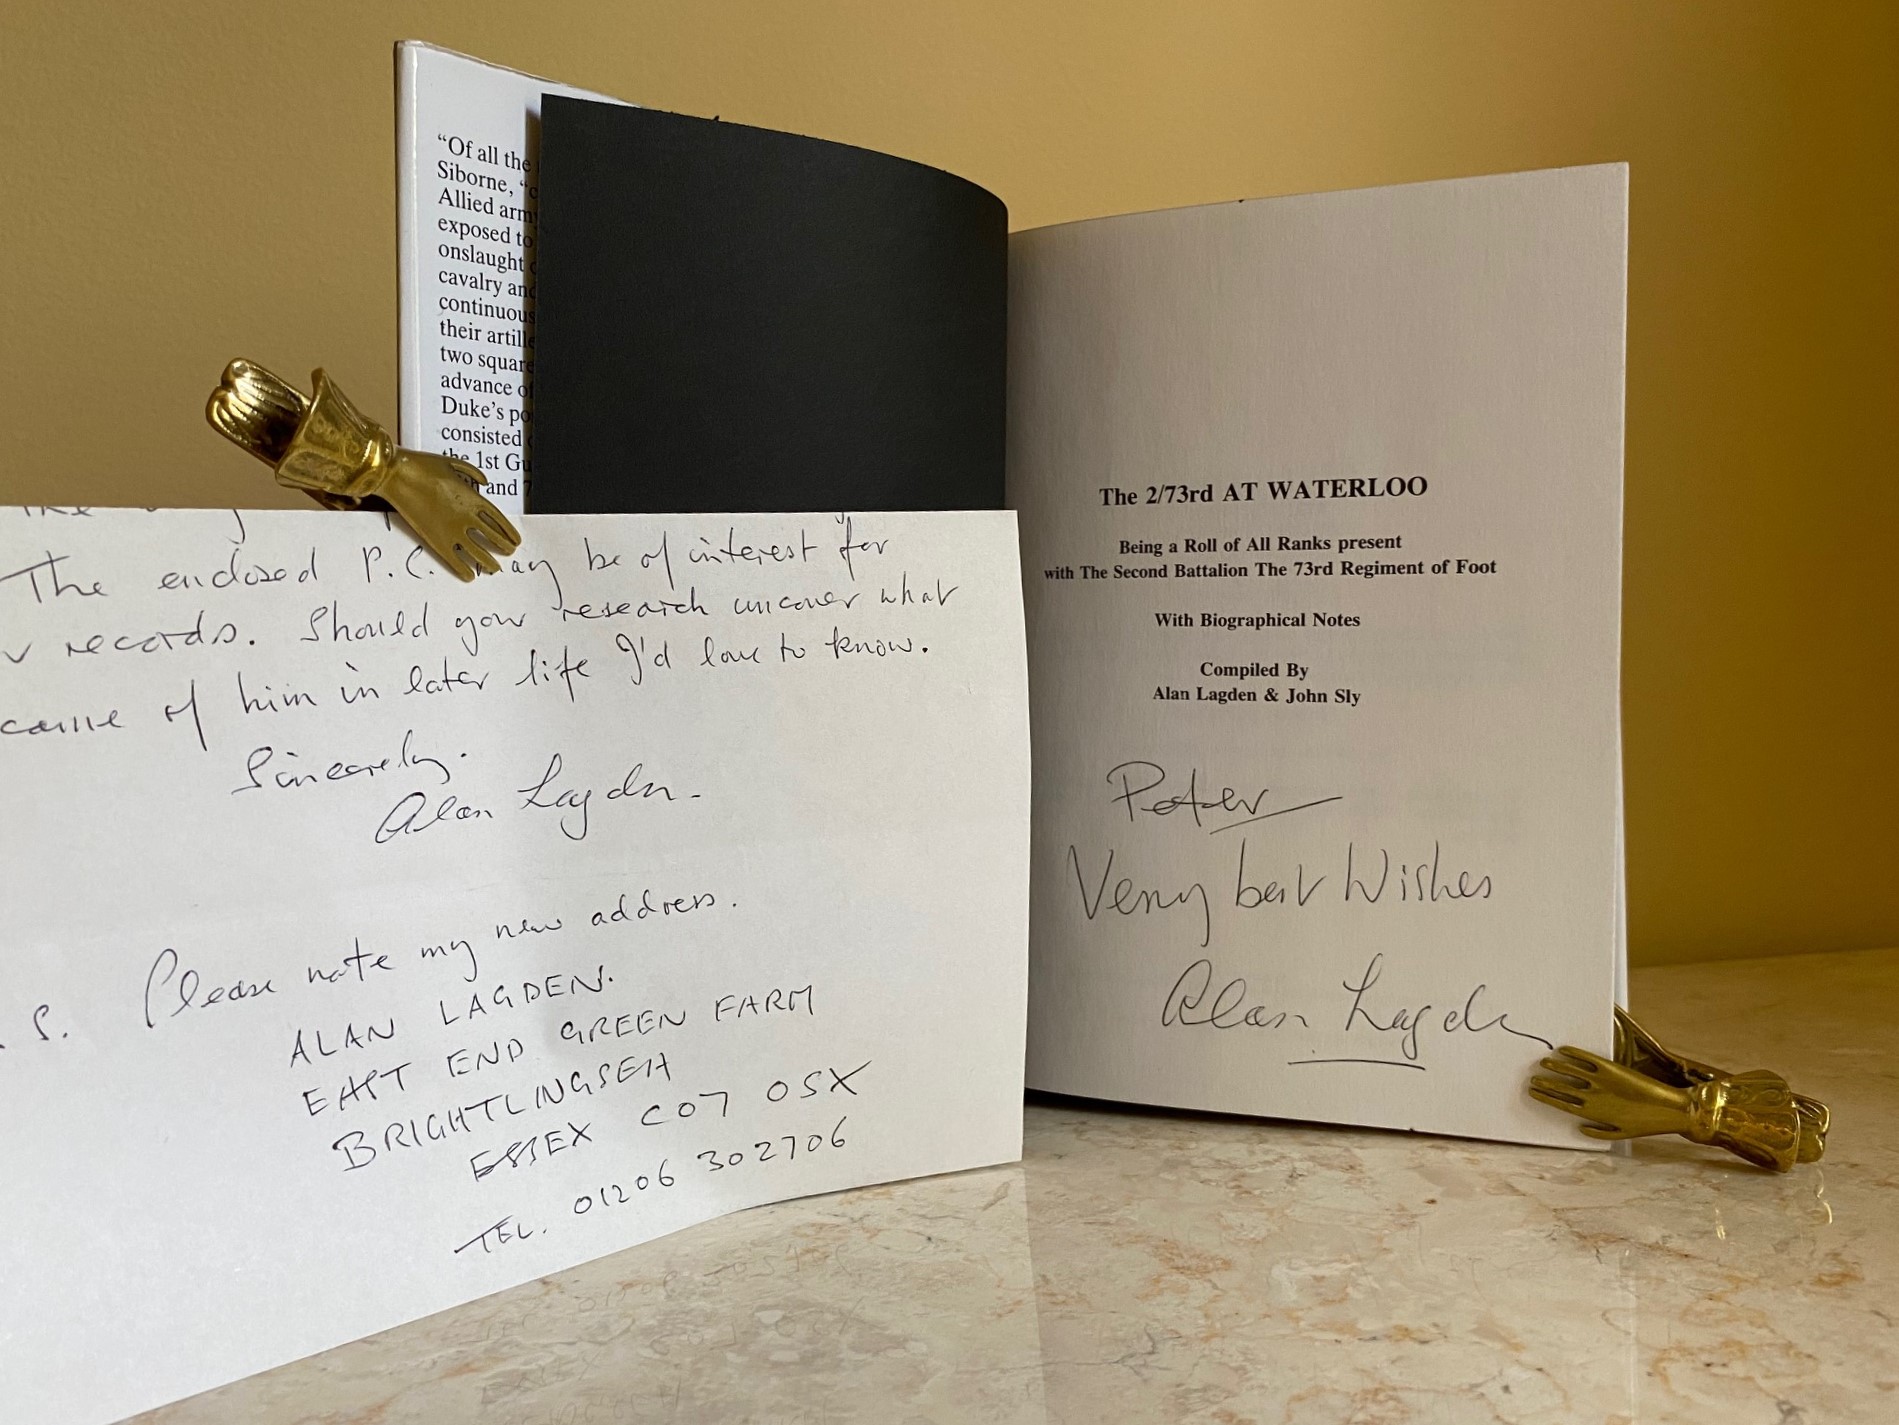 "Of all the
Siborne, "c
Allied arm
exposed to
onslaught
cavalry and
continuous
their artille
two square
advance of
Duke's po
consisted
the 1st Gu
and 7
The enclosed P.C. may be of interest for
records. Should your research uncover what
came of him in later life I'd love to know.
Sincerely.
Alan Lagden.
S. Please note my new address.
ALAN LAGDEN.
EAST END GREEN FARM
BRIGHTLINGSEA
ESSEX CO7 0SX
TEL. 01206 302706
The 2/73rd AT WATERLOO
Being a Roll of All Ranks present
with The Second Battalion The 73rd Regiment of Foot
With Biographical Notes
Compiled By
Alan Lagden & John Sly
Peter
Very best Wishes
Alan Lagden